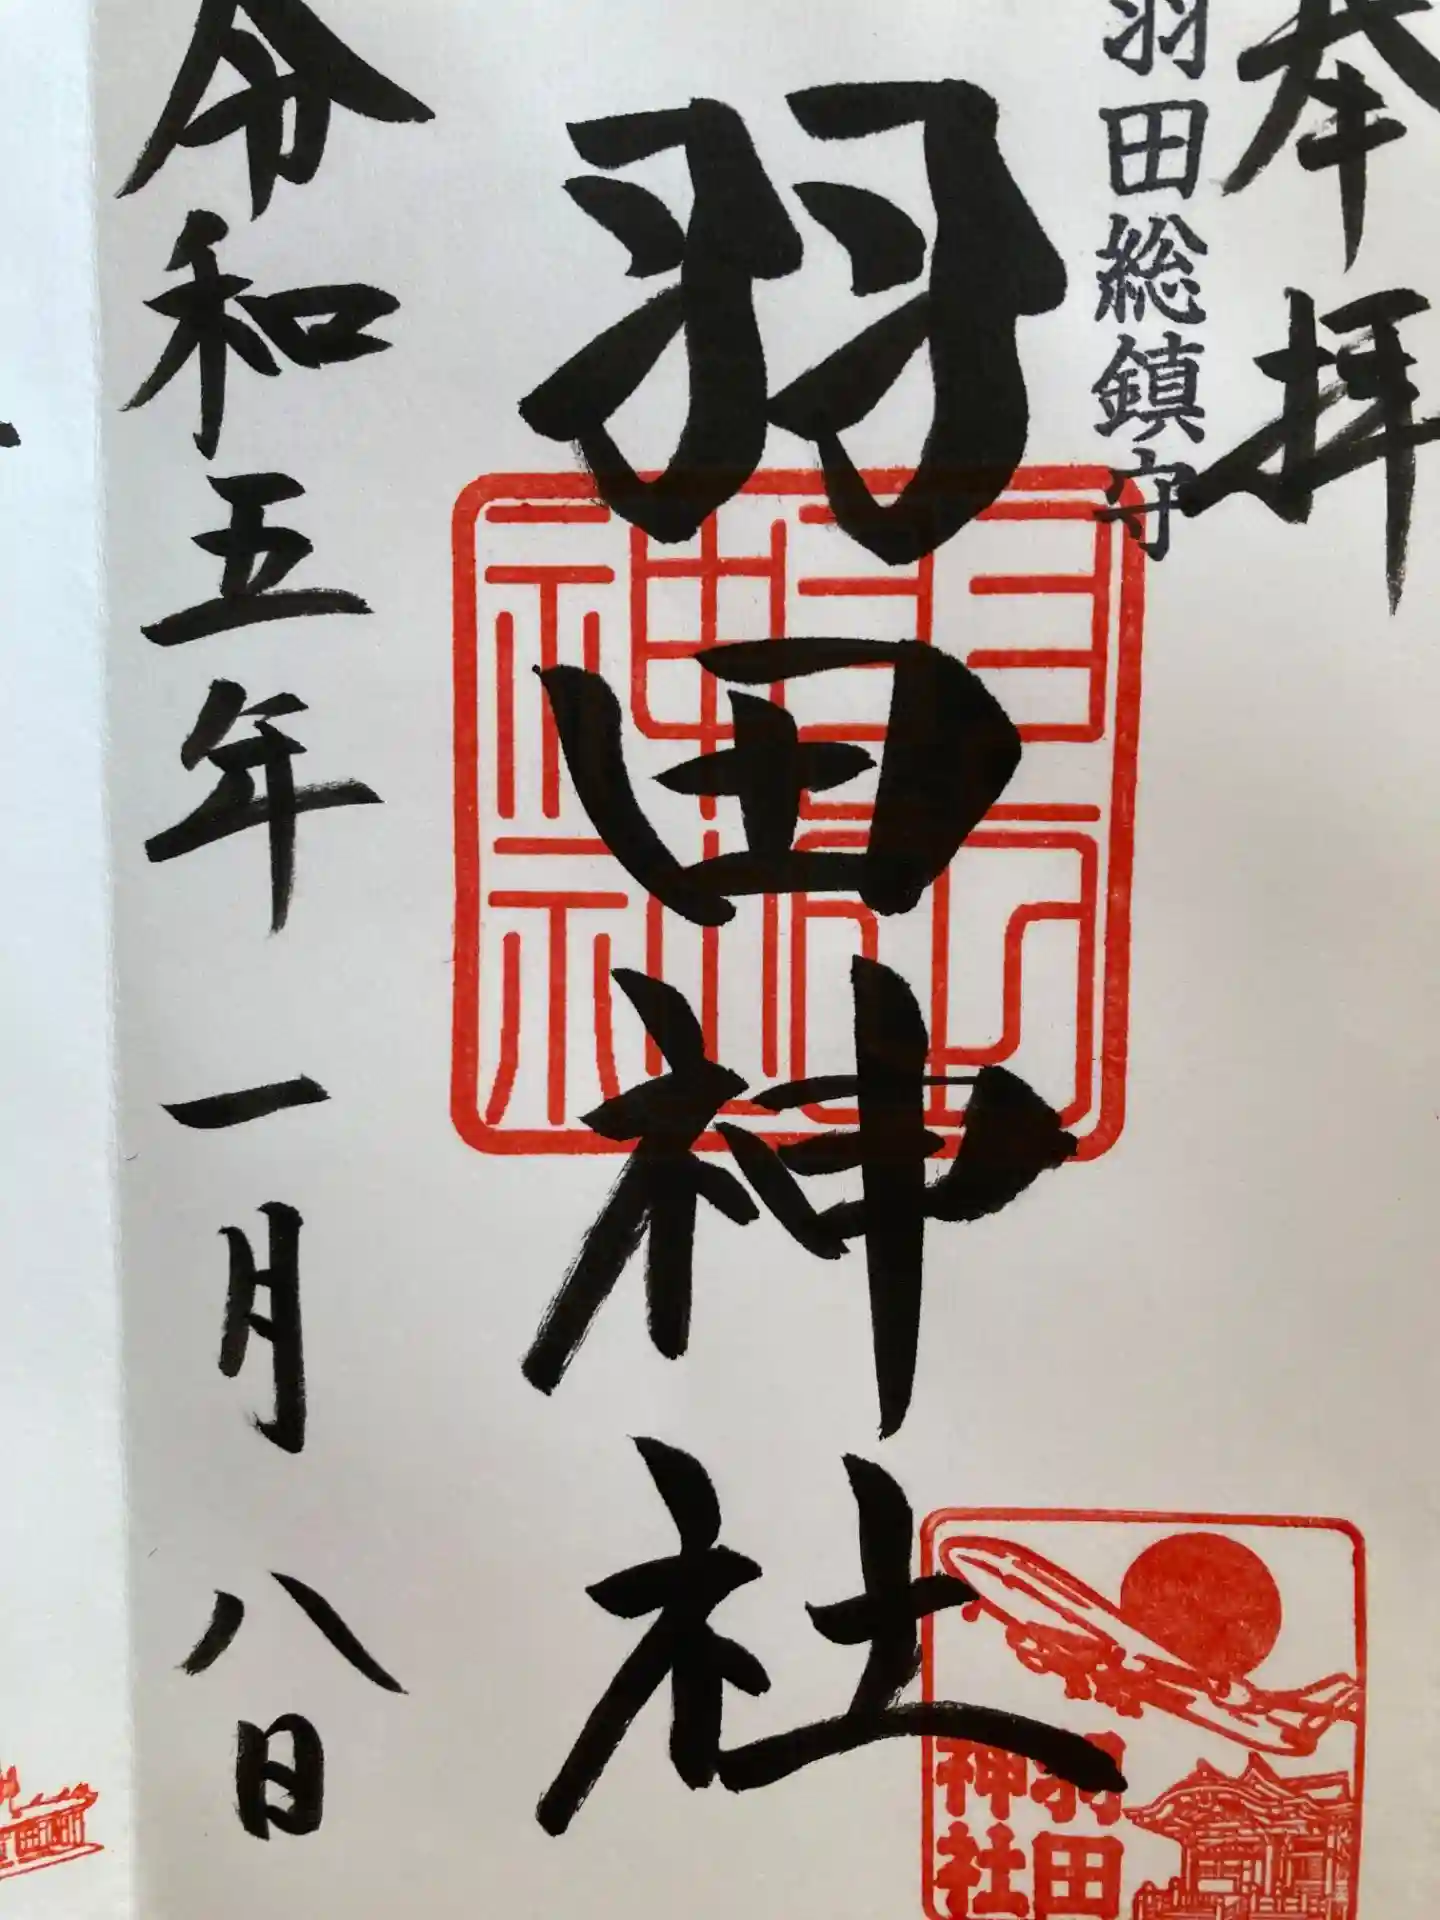 奉拝
羽田総鎮守
羽田神社
令和五年一月八日
羽田
神社